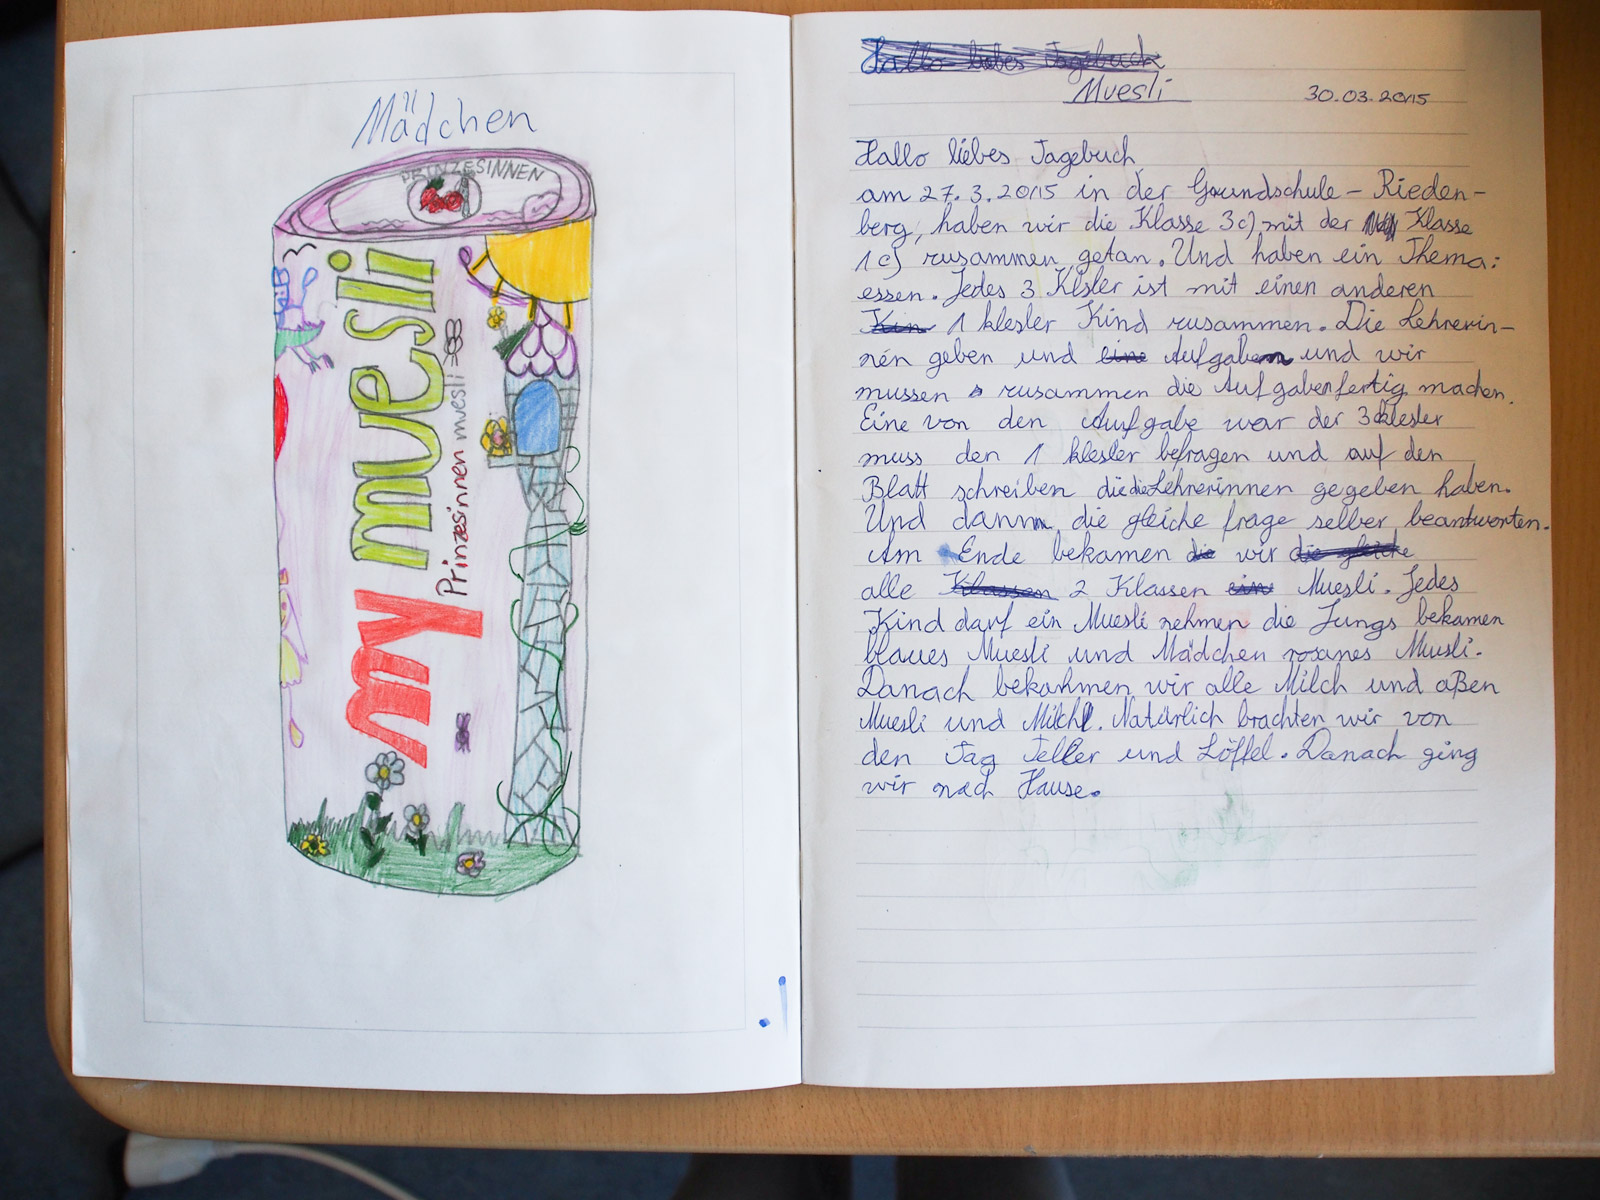 Mädchen
PRINZESINNEN
my muesli
Prinzesinnen muesli
Hallo liebes Tagebuch
Muesli
30.03.2015
Hallo liebes Tagebuch
am 27.3.2015 in der Grundschule-Rieden-
berg, haben wir die Klasse 3c) mit der Klasse
1c) zusammen getan. Und haben ein Thema:
essen. Jedes 3 Klesler ist mit einen anderen
Kin 1 klesler Kind zusammen. Die Lehrerin-
nen geben und eine Aufgaben und wir
mussen zusammen die Aufgaben fertig machen.
Eine von den Aufgabe war der 3 klesler
muss den 1 klesler befragen und auf den
Blatt schreiben die die Lehrerinnen gegeben haben.
Und dann die gleiche frage selber beantworten.
Am Ende bekamen die wir die gleiche
alle Klassen 2 Klassen ein Muesli. Jedes
Kind darf ein Muesli nehmen die Jungs bekamen
blaues Muesli und Mädchen rosanes Muesli.
Danach bekahmen wir alle Milch und aßen
Muesli und Milch. Natürlich brachten wir von
den Tag Teller und Löffel. Danach ging
wir nach Hause.